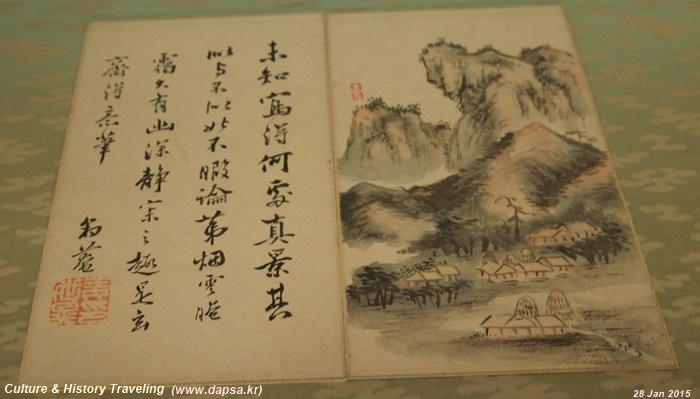 未知寫得何處真景其
似与不似姑不暇論第烟雲晻
靄大有幽深靜寂之趣是玄
齋得意筆
豹菴
Culture & History Traveling (www.dapsa.kr)
28 Jan 2015